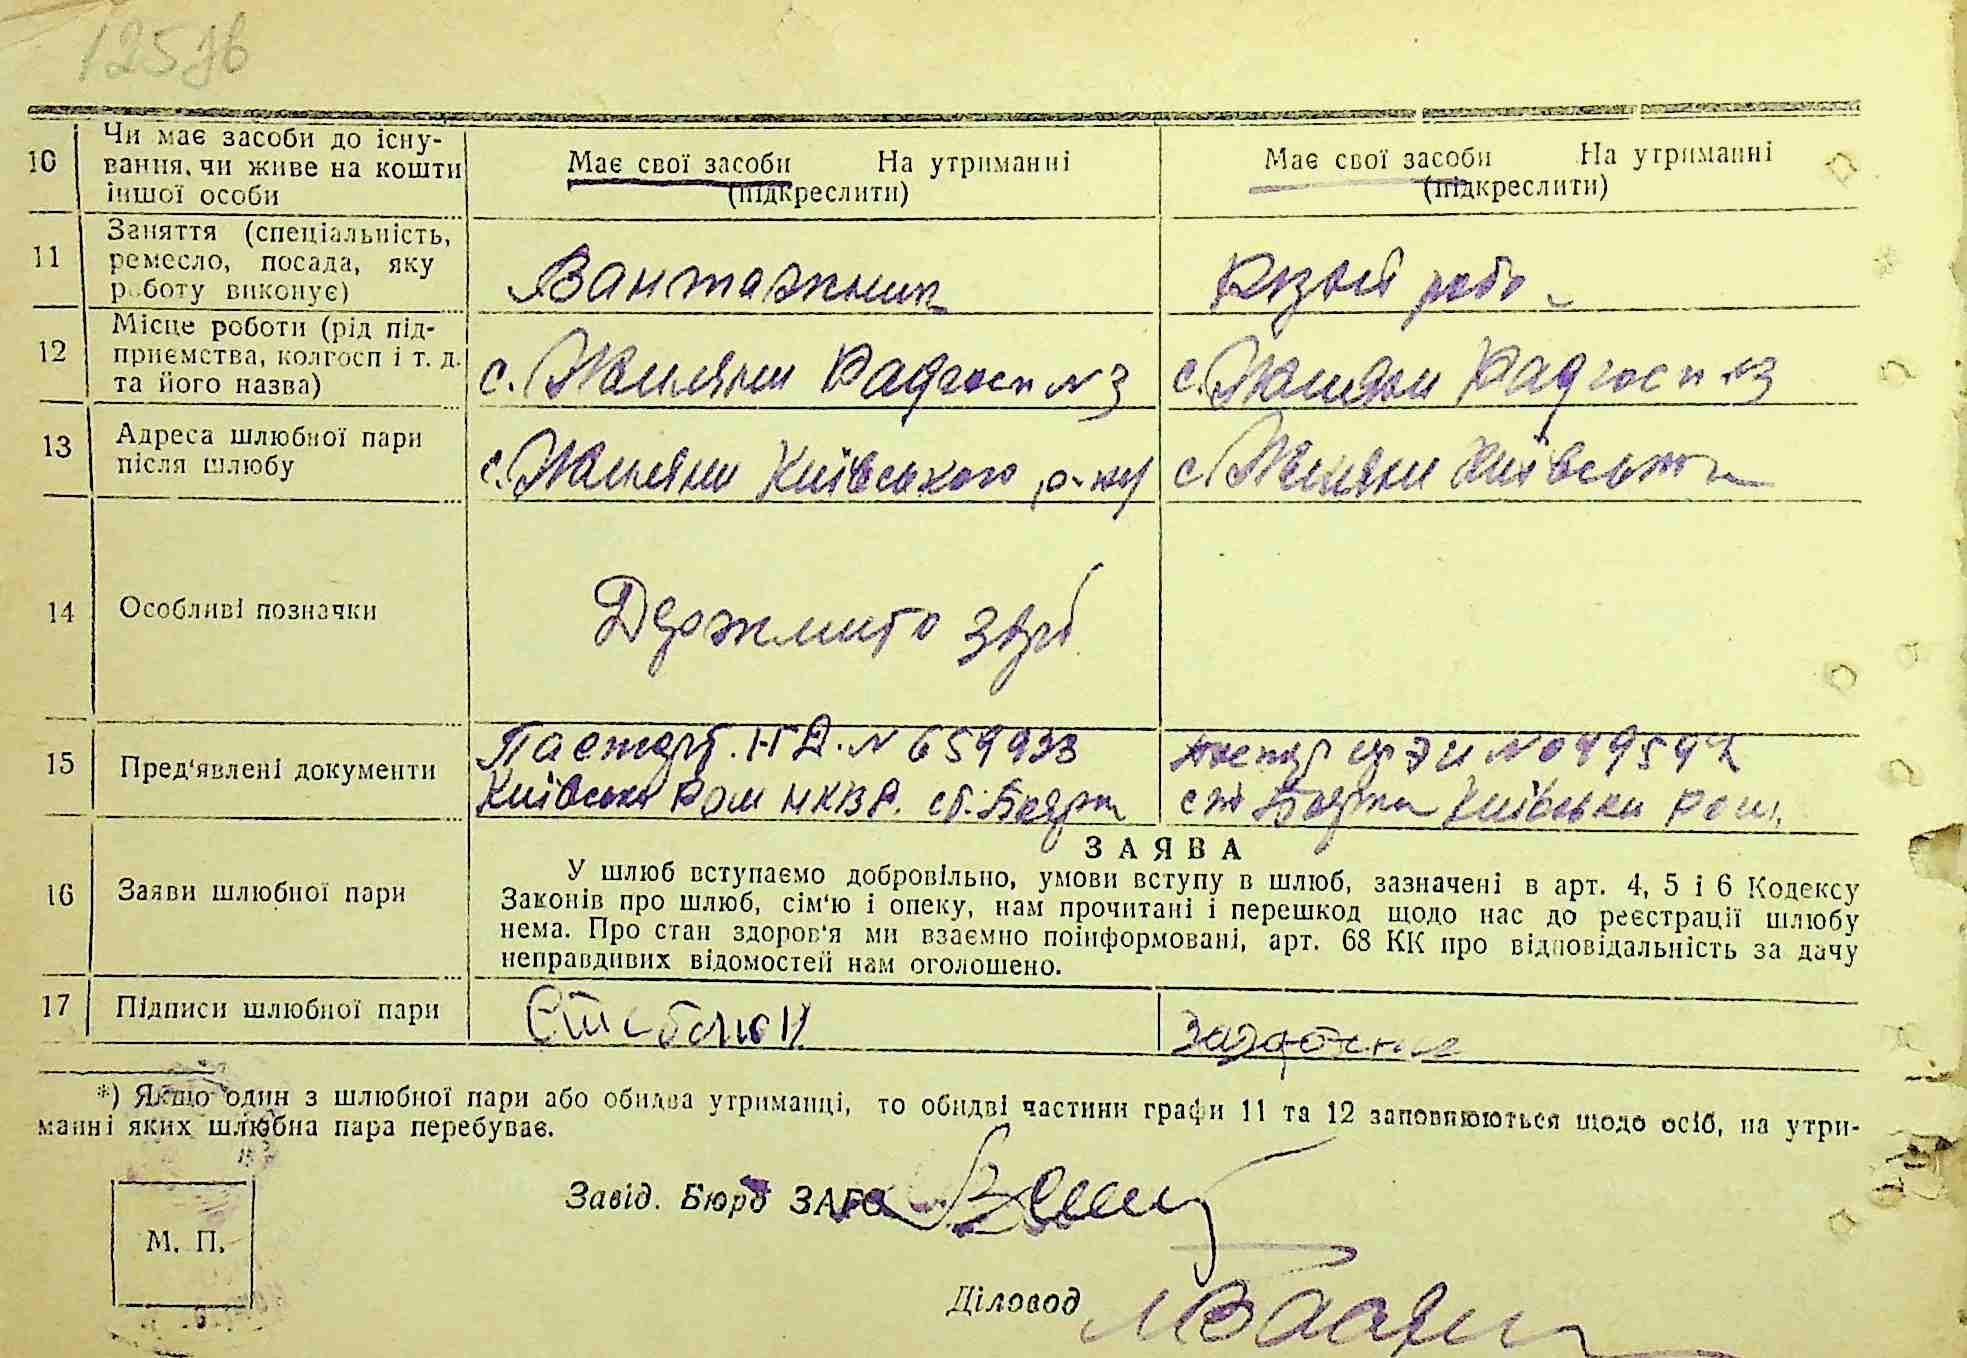 125зв
10 Чи має засоби до існу-
вання, чи живе на кошти
іншої особи
Має свої засоби На утриманні
(підкреслити)
Має свої засоби На утриманні
(підкреслити)
11 Заняття (спеціальність,
ремесло, посада, яку
роботу виконує)
Вантажник
Різні робо
12 Місце роботи (рід під-
приємства, колгосп і т. д.
та його назва)
с. Жиляни Радгосп №3
с. Жиляни Радгосп №3
13 Адреса шлюбної пари
після шлюбу
с. Жиляни Київського р-ну
с. Жиляни Київського
14 Особливі позначки
Держмито
15 Пред'явлені документи
Паспорт. НД. № 659933
Київськ Ром НКВД. ст. Боярка
№ 049594
ст Боярка Київськи Ром
16 Заяви шлюбної пари
ЗАЯВА
У шлюб вступаємо добровільно, умови вступу в шлюб, зазначені в арт. 4, 5 і 6 Кодексу
Законів про шлюб, сім'ю і опеку, нам прочитані і перешкод щодо нас до реєстрації шлюбу
нема. Про стан здоров'я ми взаємно поінформовані, арт. 68 КК про відповідальність за дачу
неправдивих відомостей нам оголошено.
17 Підписи шлюбної пари
*) Якщо один з шлюбної пари або обидва утриманці, то обидві частини графи 11 та 12 заповнюються щодо осіб, на утри-
манні яких шлюбна пара перебуває.
Завід. Бюро ЗАГС
М. П.
Діловод